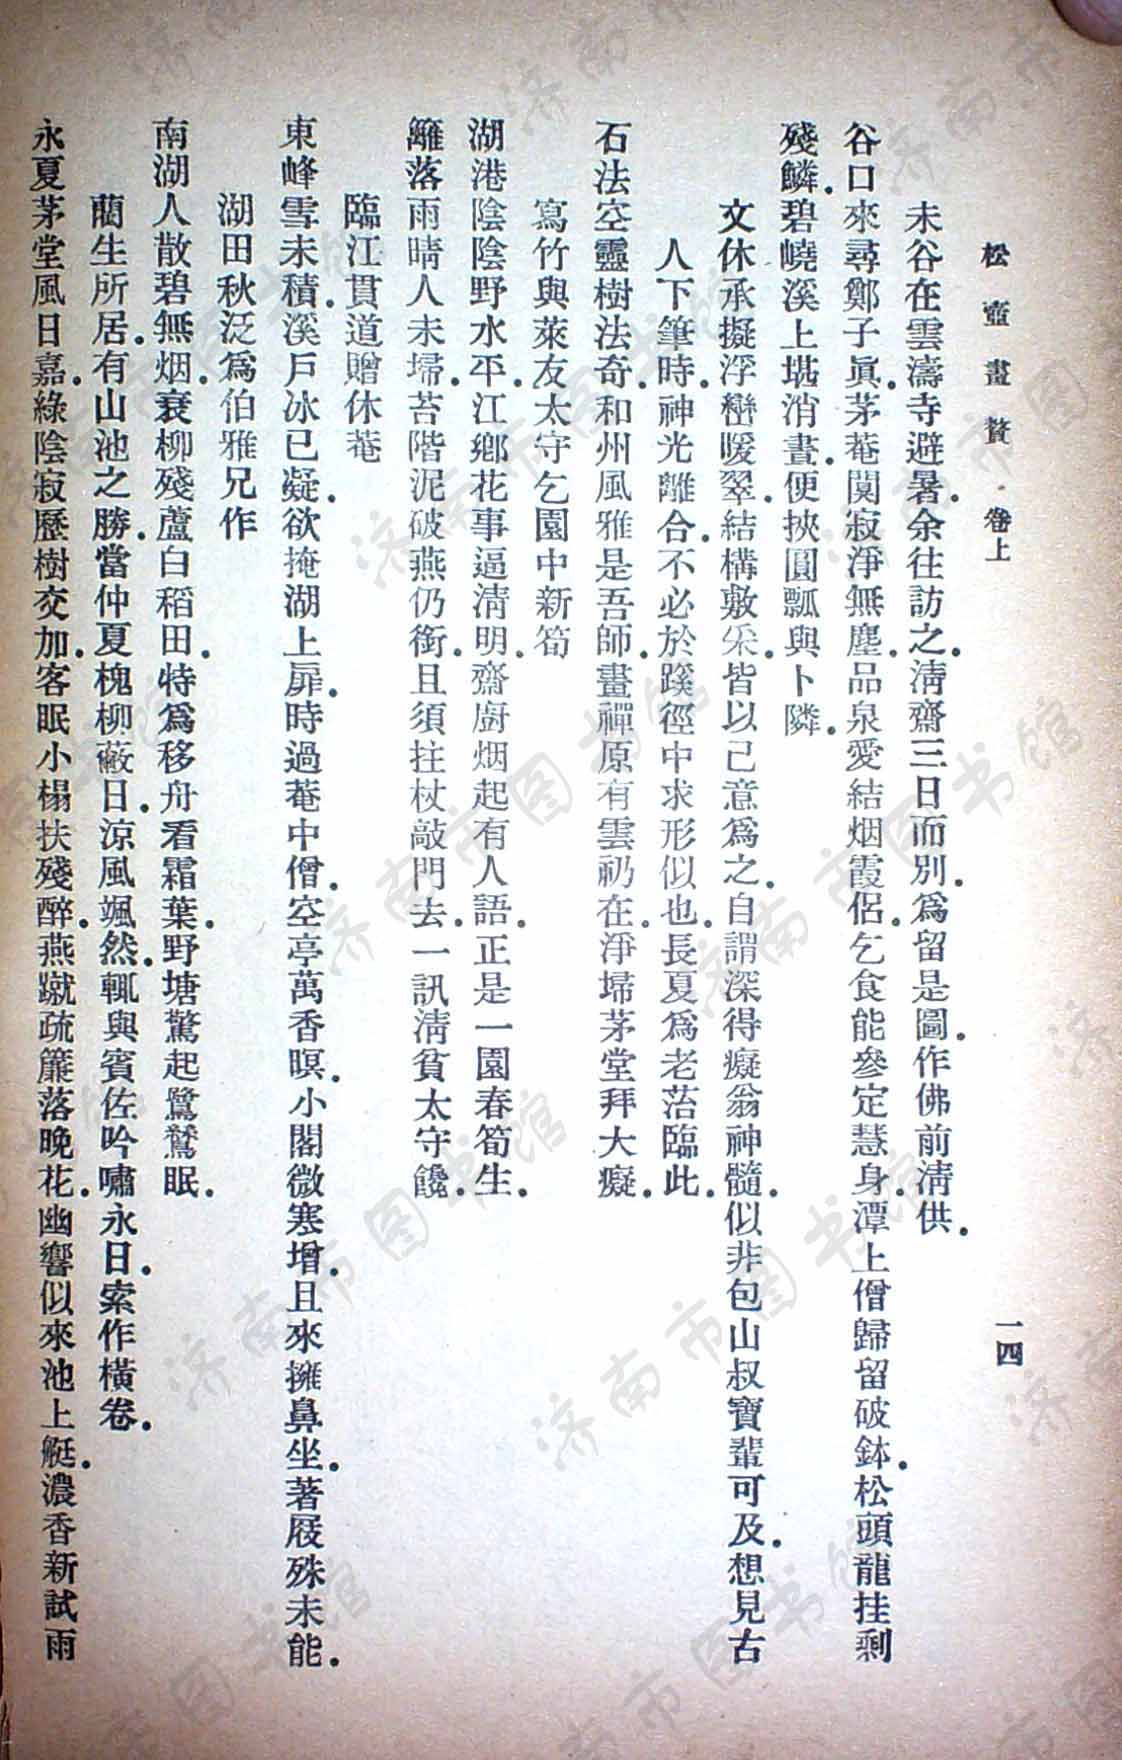 松壺畫贅 卷上 一四
未谷在雲濤寺避暑.余往訪之.淸齋三日而別.爲留是圖.作佛前淸供.
谷口來尋鄭子眞.茅菴闃寂淨無塵.品泉愛結烟霞侶.乞食能參定慧身.潭上僧歸留破鉢.松頭龍挂剩
殘鱗.碧嶢溪上堪消晝.便挾圓瓢與卜隣.
文休承擬浮巒暖翠.結構敷采.皆以己意爲之.自謂深得癡翁神髓.似非包山叔寶輩可及.想見古
人下筆時.神光離合.不必於蹊徑中求形似也.長夏爲老萿臨此.
石法空靈樹法奇.和州風雅是吾師.畫禪原有雲礽在.淨埽茅堂拜大癡.
寫竹與萊友太守乞園中新筍
湖港陰陰野水平.江鄕花事逼淸明.齋廚烟起有人語.正是一園春筍生.
籬落雨晴人未埽.苔階泥破燕仍銜.且須拄杖敲門去.一訊淸貧太守饞.
臨江貫道贈休菴
東峰雪未積.溪戶冰已凝.欲掩湖上扉.時過菴中僧.空亭萬香暝.小閣微寒增.且來擁鼻坐.著屐殊未能.
湖田秋泛爲伯雅兄作
南湖人散碧無烟.衰柳殘蘆白稻田.特爲移舟看霜葉.野塘驚起鷺鷥眠.
藺生所居.有山池之勝.當仲夏槐柳蔽日.涼風颯然.輒與賓佐吟嘯永日.索作橫卷.
永夏茅堂風日嘉.綠陰寂歷樹交加.客眠小榻扶殘醉.燕蹴疏簾落晚花.幽響似來池上艇.濃香新試雨